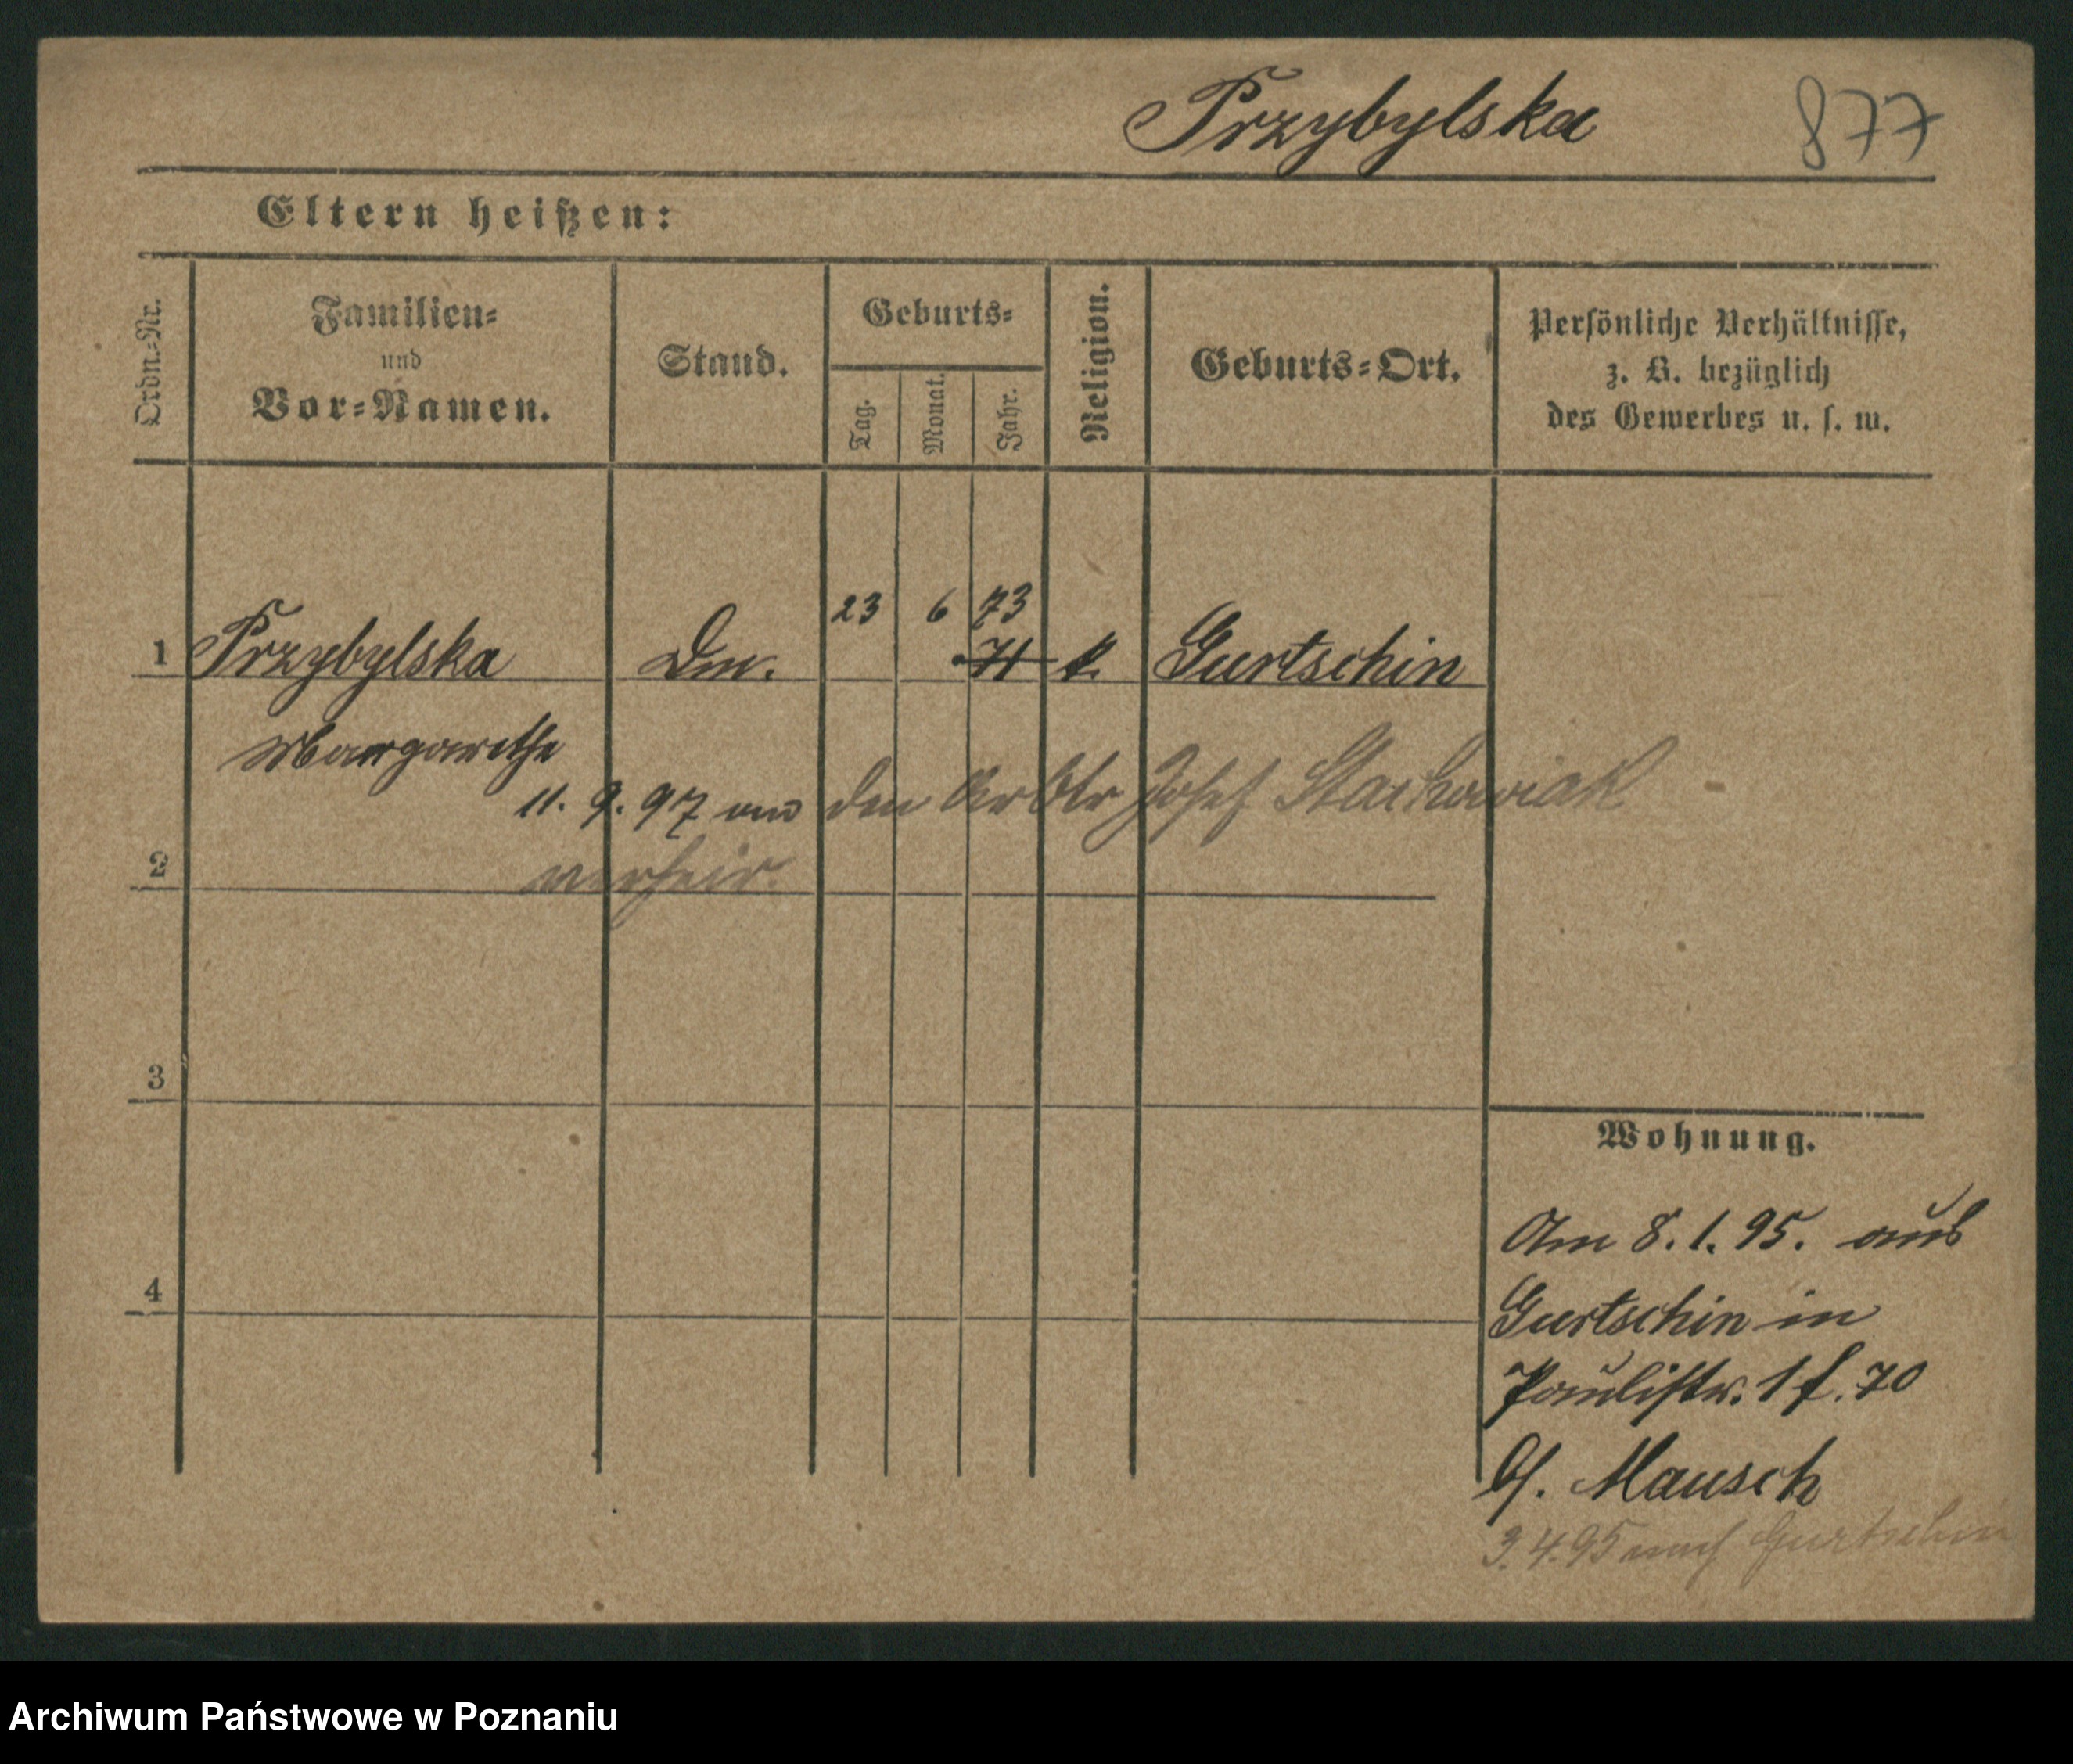 Przybylska 877
Eltern heißen:
Ordn.-Nr.
Familien-
und
Vor-Namen.
Stand.
Geburts-
Tag.
Monat.
Jahr.
Religion.
Geburts-Ort.
Persönliche Verhältnisse,
z. B. bezüglich
des Gewerbes u. s. w.
23 6 73
1 Przybylska Dm. 71 k. Gurtschin
Margarethe
11. 9. 97 an den Arbtr Josef Stachowiak
2 verheir.
3
4
Wohnung.
Am 8. 1. 95. aus
Gurtschin in
Paulistr. 1 f. 70
b/. Mausch
3. 4. 95 nach Gurtschin
Archiwum Państwowe w Poznaniu